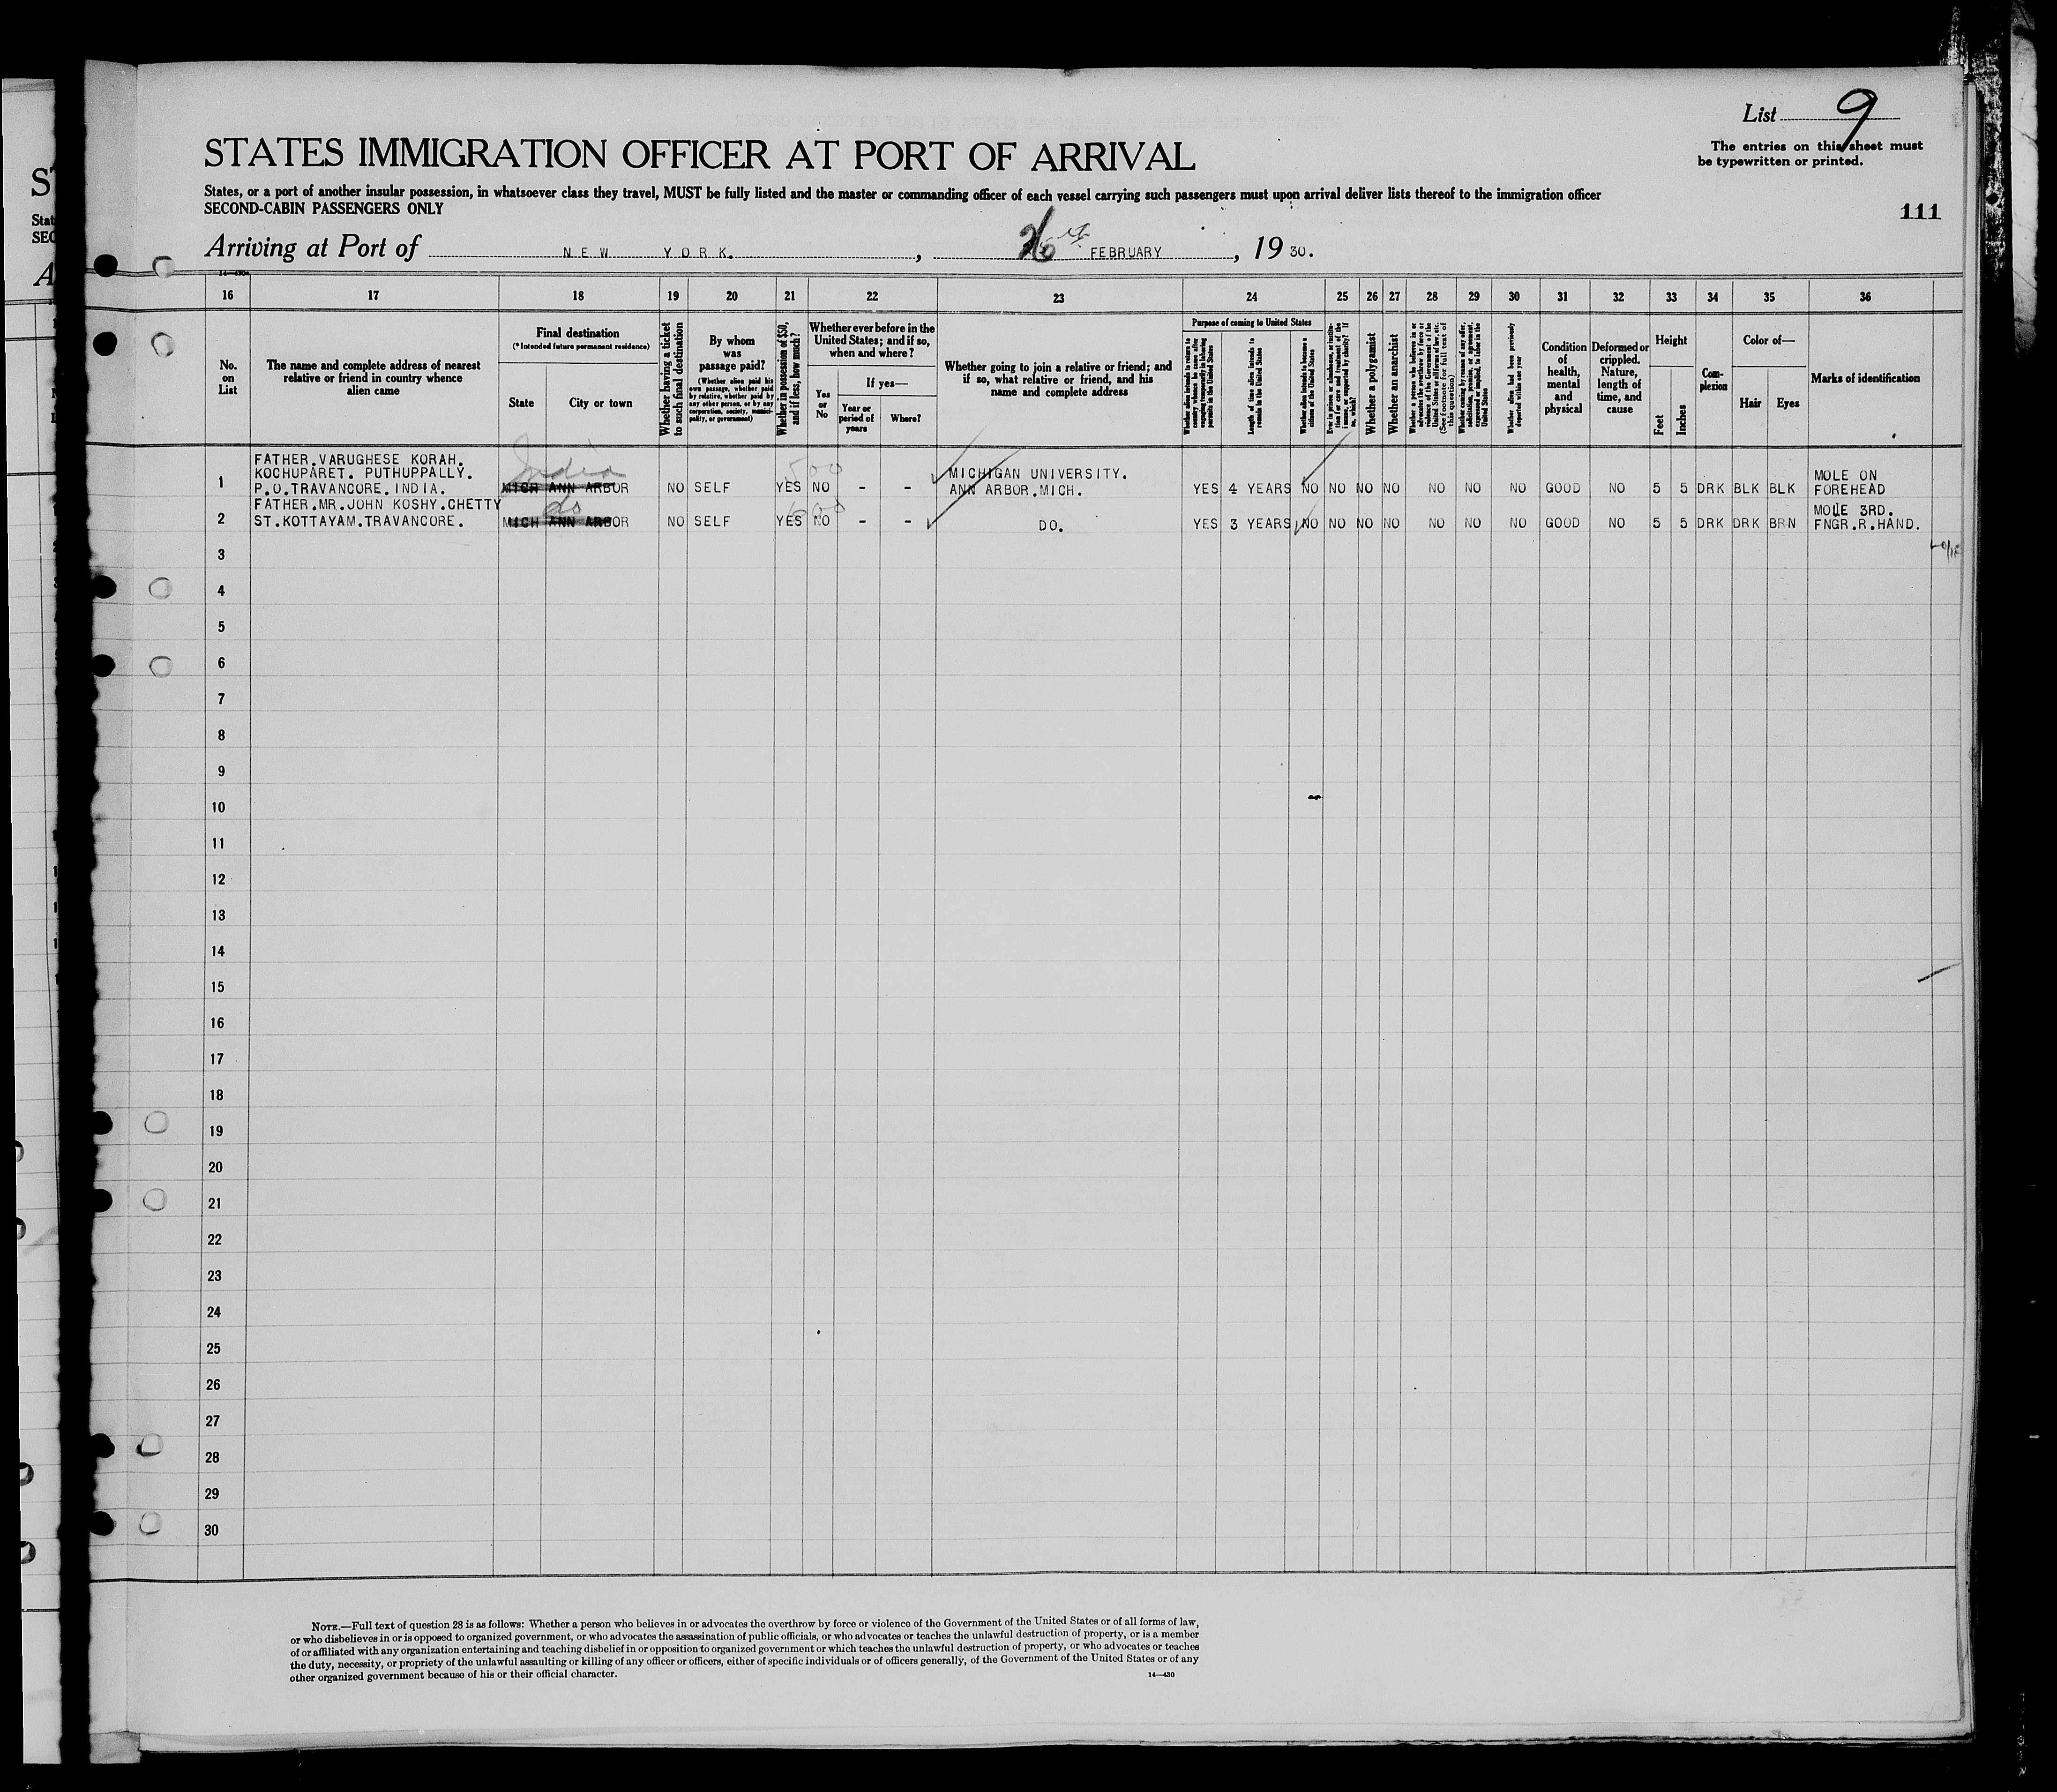 List 9
STATES IMMIGRATION OFFICER AT PORT OF ARRIVAL
The entries on this sheet must
be typewritten or printed.
States, or a port of another insular possession, in whatsoever class they travel, MUST be fully listed and the master or commanding officer of each vessel carrying such passengers must upon arrival deliver lists thereof to the immigration officer
SECOND-CABIN PASSENGERS ONLY
111
Arriving at Port of NEW YORK. , FEBRUARY , 19 30.
14-430
16 17 18 19 20 21 22 23 24 25 26 27 28 29 30 31 32 33 34 35 36
No. on List
The name and complete address of nearest relative or friend in country whence alien came
Final destination
(*Intended future permanent residence)
State
City or town
Whether having a ticket to such final destination
By whom was passage paid?
(Whether alien paid his own passage, whether paid by relative, whether paid by any other person, or by any corporation, society, municipality, or government)
Whether in possession of $50, and if less, how much?
Whether ever before in the United States; and if so, when and where?
Yes or No
If yes—
Year or period of years
Where?
Whether going to join a relative or friend; and if so, what relative or friend, and his name and complete address
Purpose of coming to United States
Length of time alien intends to remain in the United States
Whether alien intends to become a citizen of the United States
Whether a polygamist
Whether an anarchist
Whether alien had been previously deported within one year
Condition of health, mental and physical
Deformed or crippled. Nature, length of time, and cause
Height
Feet
Inches
Complexion
Color of—
Hair
Eyes
Marks of identification
India
500
FATHER.VARUGHESE KORAH.
KOCHUPARET. PUTHUPPALLY.
P.O.TRAVANCORE.INDIA.
1 MICH ANN ARBOR NO SELF YES NO - - MICHIGAN UNIVERSITY. ANN ARBOR.MICH. YES 4 YEARS NO NO NO NO NO NO NO GOOD NO 5 5 DRK BLK BLK MOLE ON FOREHEAD
do
FATHER.MR.JOHN KOSHY.CHETTY
ST.KOTTAYAM.TRAVANCORE.
2 MICH ANN ARBOR NO SELF YES NO - - DO. YES 3 YEARS NO NO NO NO NO NO NO GOOD NO 5 5 DRK DRK BRN MOLE 3RD. FNGR.R.HAND.
3
4
5
6
7
8
9
10
11
12
13
14
15
16
17
18
19
20
21
22
23
24
25
26
27
28
29
30
NOTE.—Full text of question 28 is as follows: Whether a person who believes in or advocates the overthrow by force or violence of the Government of the United States or of all forms of law,
or who disbelieves in or is opposed to organized government, or who advocates the assassination of public officials, or who advocates or teaches the unlawful destruction of property, or is a member
of or affiliated with any organization entertaining and teaching disbelief in or opposition to organized government or which teaches the unlawful destruction of property, or who advocates or teaches
the duty, necessity, or propriety of the unlawful assaulting or killing of any officer or officers, either of specific individuals or of officers generally, of the Government of the United States or of any
other organized government because of his or their official character.
14—430